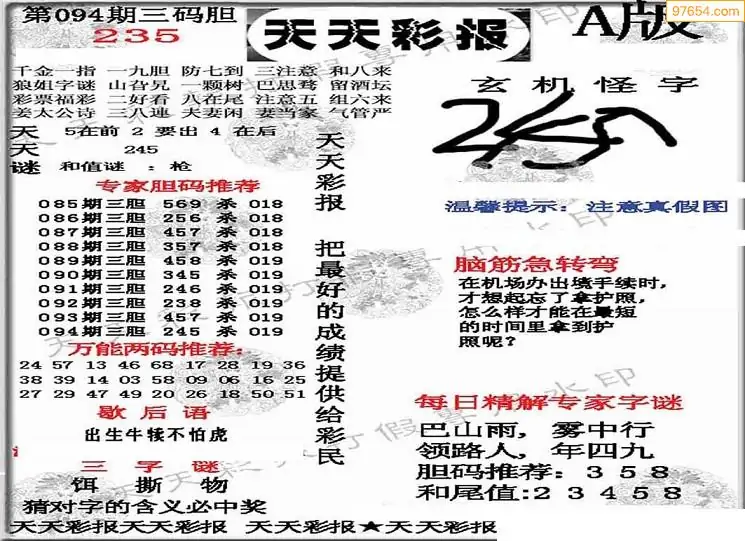 第094期三码胆
235
天天彩报
A版
97654.com
千金一指 一九胆 防七到 三注意 和八来
狼姐字谜 山旮旯 一颗树 巴思骛 留酒坛
彩票福彩 二好看 八在尾 注意五 组六来
姜太公诗 三八連 夫妻闲 妻当家 气管严
天 5在前 2 要出 4 在后
天 245
谜 和值谜 :枪
专家胆码推荐
085期三胆 569 杀 018
086期三胆 256 杀 018
087期三胆 457 杀 018
088期三胆 357 杀 018
089期三胆 458 杀 019
090期三胆 345 杀 019
091期三胆 246 杀 019
092期三胆 238 杀 019
093期三胆 457 杀 019
094期三胆 245 杀 019
万能两码推荐:
24 57 13 46 68 17 28 19 36
38 39 14 03 58 09 06 16 25
27 29 47 49 20 26 18 50 51
歇后语
出生牛犊不怕虎
三字谜
饵 撕 物
猜对字的含义必中奖
天天彩报 把最好的成绩提供给彩民
玄机怪字
温馨提示: 注意真假图
脑筋急转弯
在机场办出境手续时,
才想起忘了拿护照,
怎么样才能在最短
的时间里拿到护
照呢?
每日精解专家字谜
巴山雨, 雾中行
领路人, 年四九
胆码推荐: 358
和尾值:23458
天天彩报天天彩报 天天彩报★天天彩报